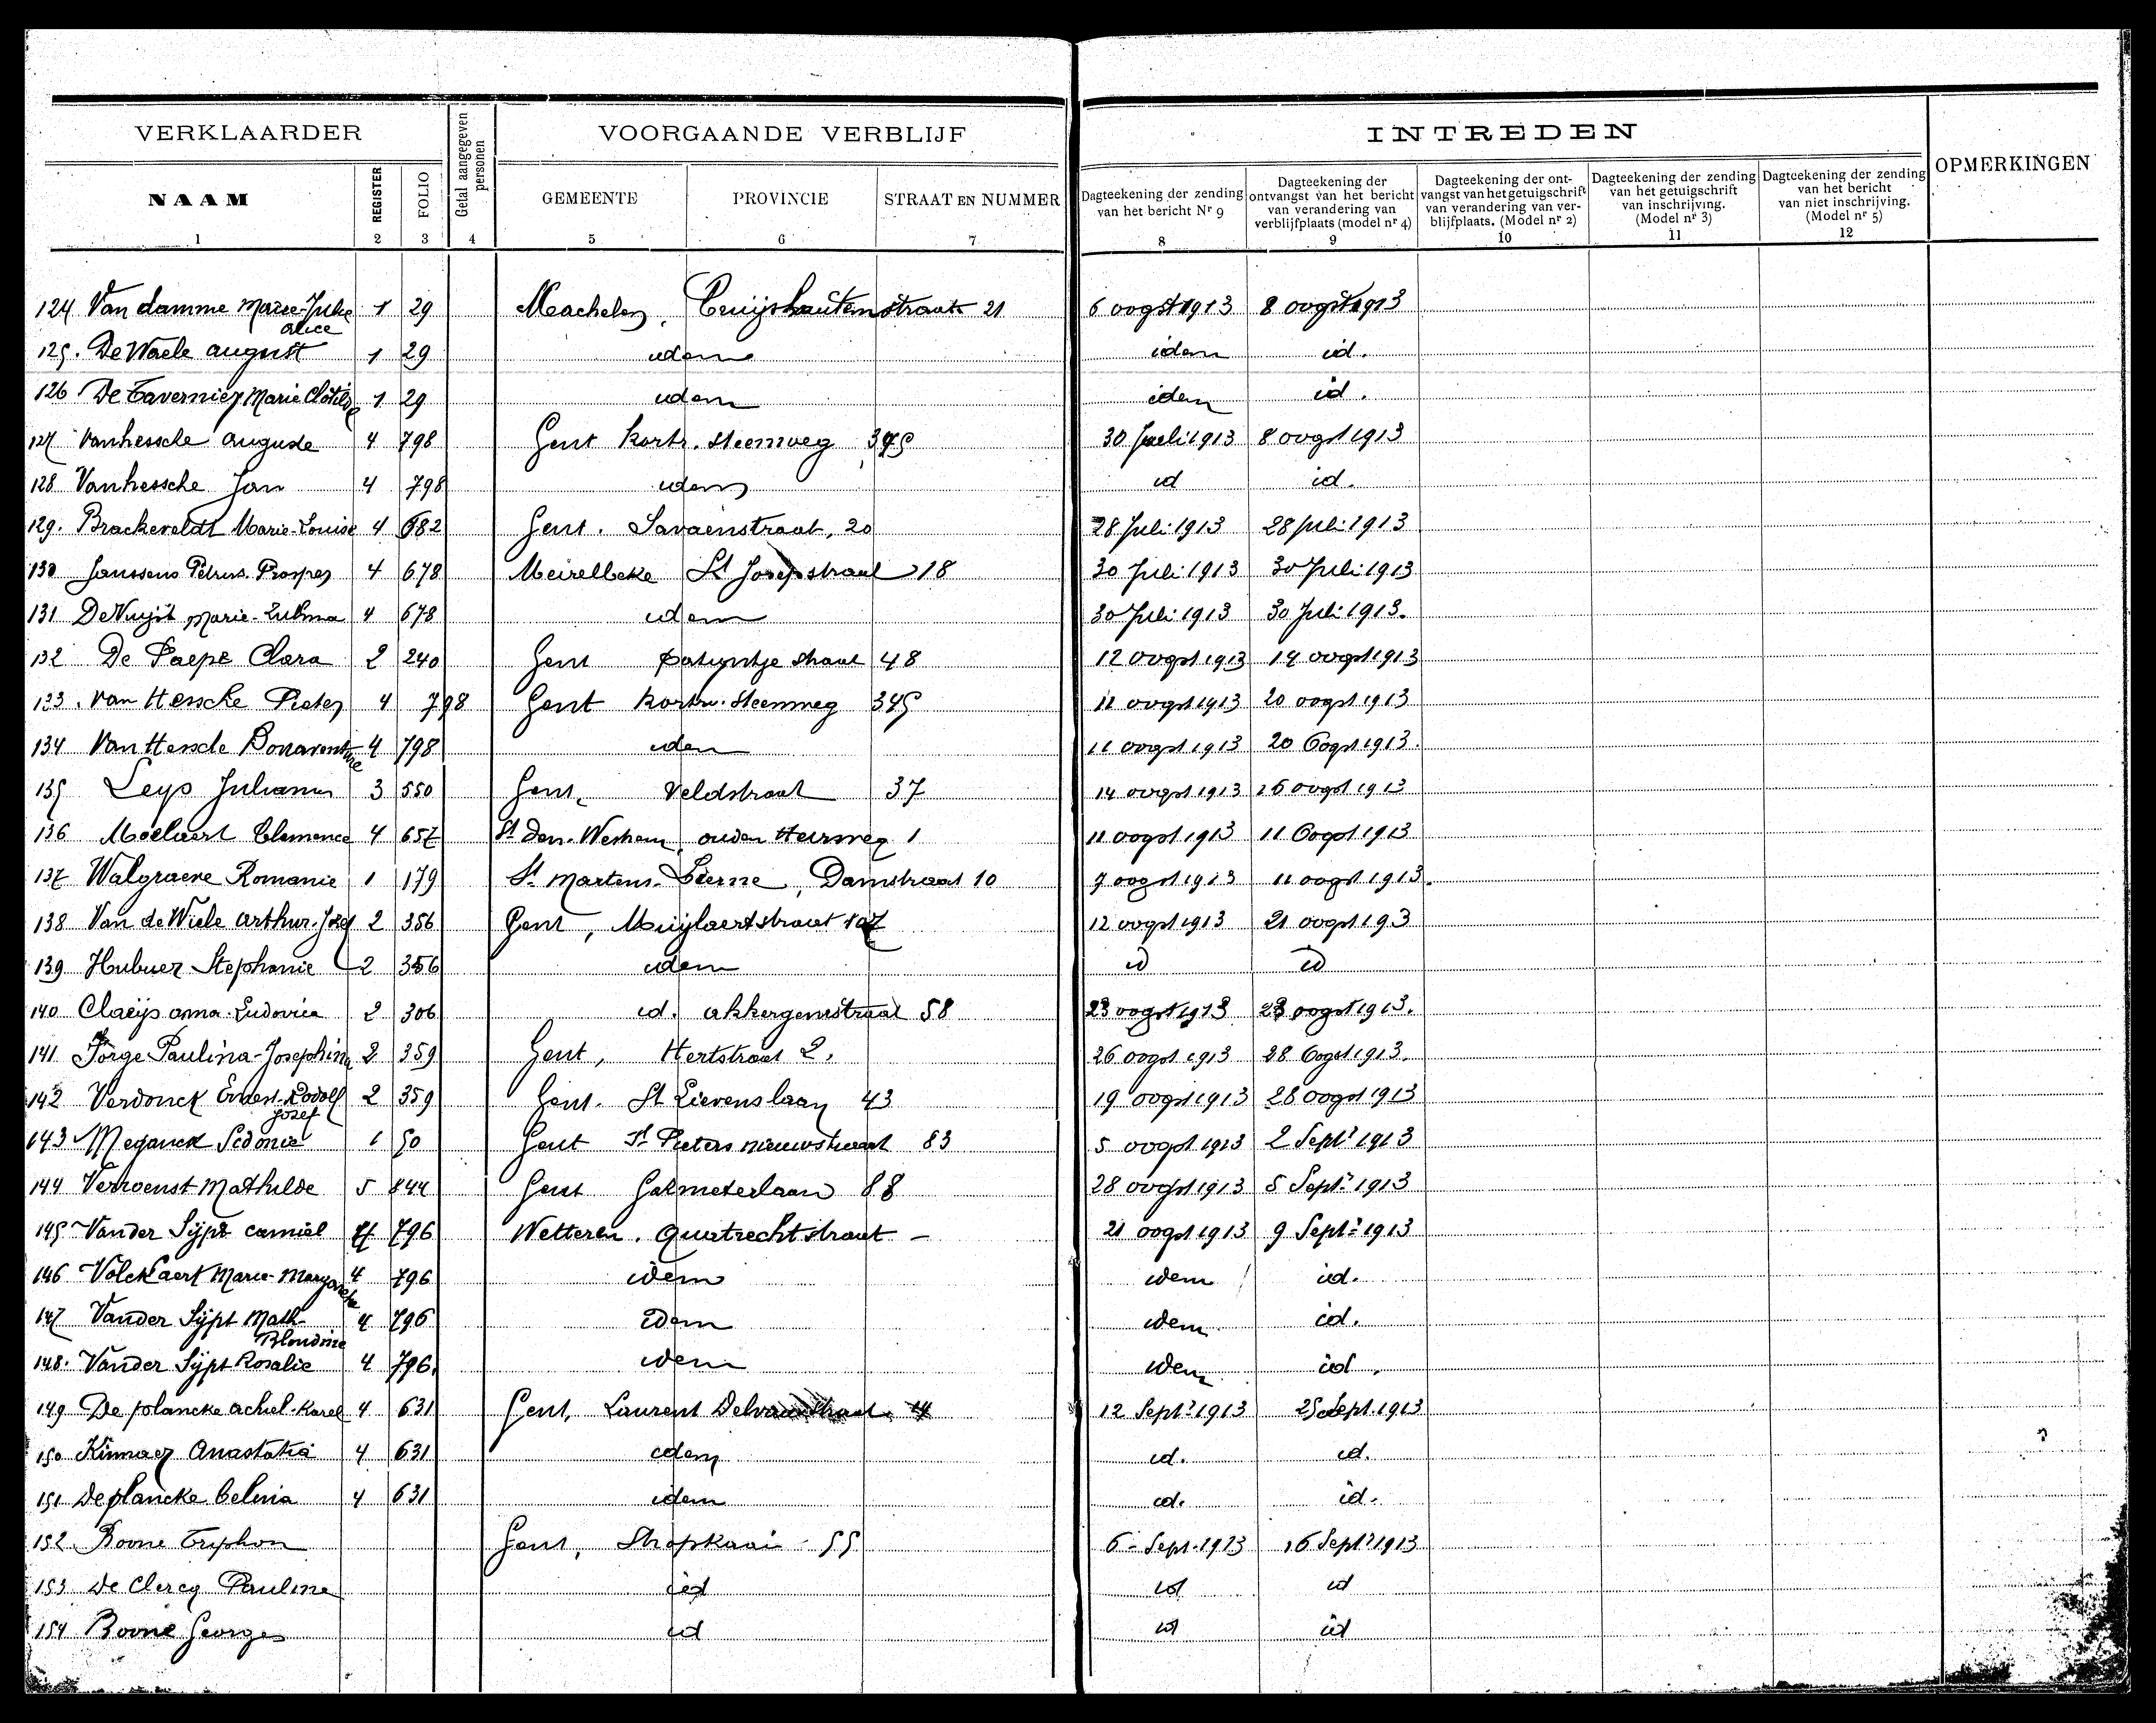 VERKLAARDER VOORGAANDE VERBLIJF INTREDEN OPMERKINGEN
NAAM REGISTER FOLIO Getal aangegeven personen GEMEENTE PROVINCIE STRAAT EN NUMMER Dagteekening der zending van het bericht Nr 9 Dagteekening der ontvangst van het bericht van verandering van verblijfplaats (model nr 4) Dagteekening der ontvangst van het getuigschrift van verandering van verblijfplaats. (Model nr 2) Dagteekening der zending van het getuigschrift van inschrijving. (Model nr 3) Dagteekening der zending van het bericht van niet inschrijving. (Model nr 5)
1 2 3 4 5 6 7 8 9 10 11 12
124 Van damme Marie-Julie alice 1 29 Machelen, Cruijshautemstraat 21 6 oogst 1913 8 oogst 1913
125. De Waele august 1 29 idem idem id.
126 De Tavernier Marie Clotilde 1 29 idem idem id.
127 Vanhessche auguste 4 798 Gent Kortr. steenweg 345 30 Juli 1913 8 oogst 1913
128 Vanhessche Jan 4 798 idem id id.
129. Brackeveldt Marie-Louise 4 682 Gent. Savaenstraat, 20 28 Juli 1913 28 Juli 1913
130 Janssens Petrus. Prosper 4 678 Meirelbeke St Josepstraat 18 30 Juli 1913 30 Juli 1913
131 De Vuijst Marie-Zulma 4 678 idem 30 Juli 1913 30 Juli 1913.
132 De Paepe Clara 2 240 Gent Patijntje straat 48 12 oogst 1913 14 oogst 1913
133. Van Hessche Pieter 4 798 Gent Kortr. steenweg 345 11 oogst 1913 20 oogst 1913
134 Van Hessche Bonaventure 4 798 idem 11 oogst 1913 20 Oogst 1913.
135 Leys Julianus 3 550 Gent, Veldstraat 37 14 oogst 1913 26 oogst 1913
136 Moelaert Clemence 4 657 St Den. Westrem, ouden Heirweg 1 11 oogst 1913 11 Oogst 1913
137 Walgraeve Romanie 1 179 St. Martens-Lierne, Damstraat 10 7 oogst 1913 11 oogst 1913.
138 Van de Wiele Arthur-Jozef 2 356 Gent, Muijlaertstraat 107 12 oogst 1913 21 oogst 193
139 Hubuer Stephanie 2 356 idem id id
140 Claeijs anna-Ludovica 2 306 id. akkergemstraat 58 23 oogst 1913 23 oogst 1913.
141 Jorge Paulina-Josephina 2 359 Gent, Hertstraat 2. 26 oogst 1913 28 Oogst 1913.
142 Verdonck Ernest-Rodolf Jozef 2 359 Gent. St Lievenslaan 43 19 oogst 1913 28 oogst 1913
143 Meganck Sidonie 1 50 Gent St. Pieters nieuwstraat 83 5 oogst 1913 2 Sept. 1913
144 Vervoenst Mathilde 5 844 Gent Gasmeterlaan 88 28 oogst 1913 5 Sept. 1913
145 Vander Sijpt camiel 4 796 Wetteren. Quatrechtstraat - 21 oogst 1913 9 Sept. 1913
146 Volckaert Marie- 4 796 idem idem id.
147 Vander Sijpt Math- Blondine 4 796 idem idem id.
148. Vander Sijpt Rosalie 4 796. idem idem id.
149 De plancke achiel-Karel 4 631 Gent, Laurent Delvauxstraat 4 12 Sept. 1913 25 Sept. 1913
150 Anastatia 4 631 idem id. id.
151 De plancke Celina 4 631 idem id. id.
152 Boone Triphon Gent, Stropkaai - 55 6 - Sept. 1913 16 Sept. 1913
153 De Clercq Pauline id id id
154 Boone Georges id id id